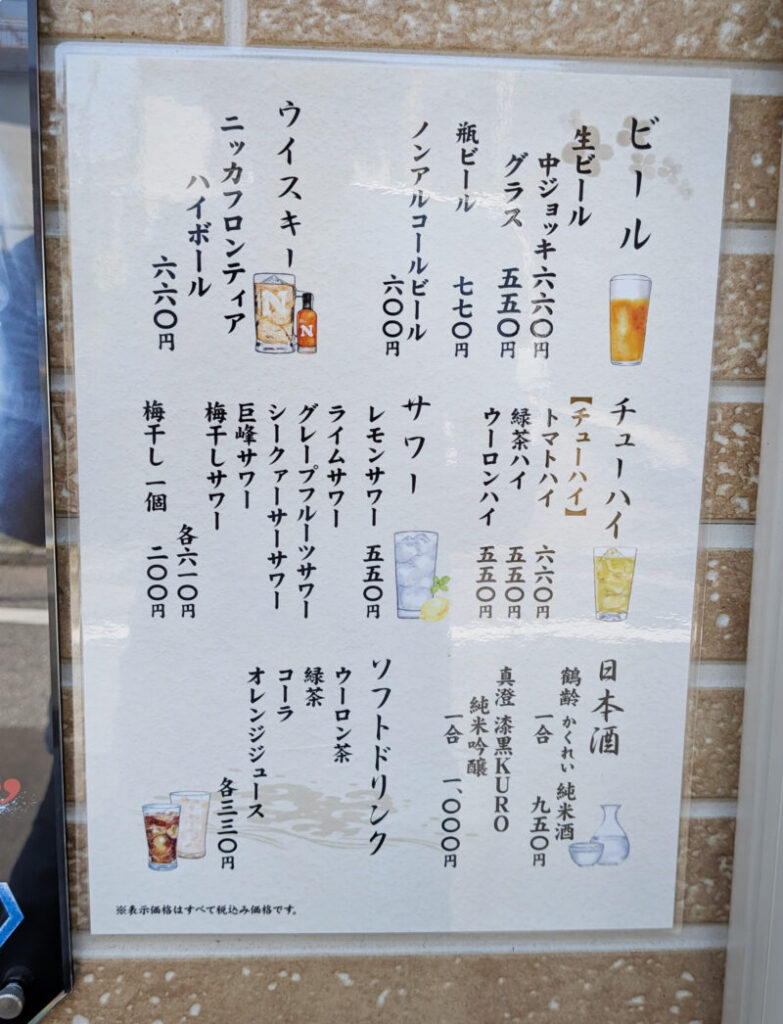 ビール
生ビール
中ジョッキ 六六〇円
グラス 五五〇円
瓶ビール 七七〇円
ノンアルコールビール
六〇〇円
ウイスキー
ニッカフロンティア
ハイボール
六六〇円
N
N
チューハイ
【チューハイ】
トマトハイ 六六〇円
緑茶ハイ 五五〇円
ウーロンハイ 五五〇円
サワー
レモンサワー 五五〇円
ライムサワー
グレープフルーツサワー
シークァーサーサワー
巨峰サワー
梅干しサワー
各六一〇円
梅干し一個 二〇〇円
日本酒
鶴齢 かくれい 純米酒
一合 九五〇円
真澄 漆黒KURO
純米吟醸
一合 一、〇〇〇円
ソフトドリンク
ウーロン茶
緑茶
コーラ
オレンジジュース
各三三〇円
※表示価格はすべて税込み価格です。